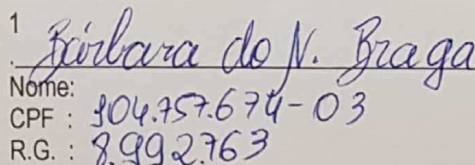 1
. Bárbara do N. Braga
Nome:
CPF : 104.757.674-03
R.G. : 8.992.763